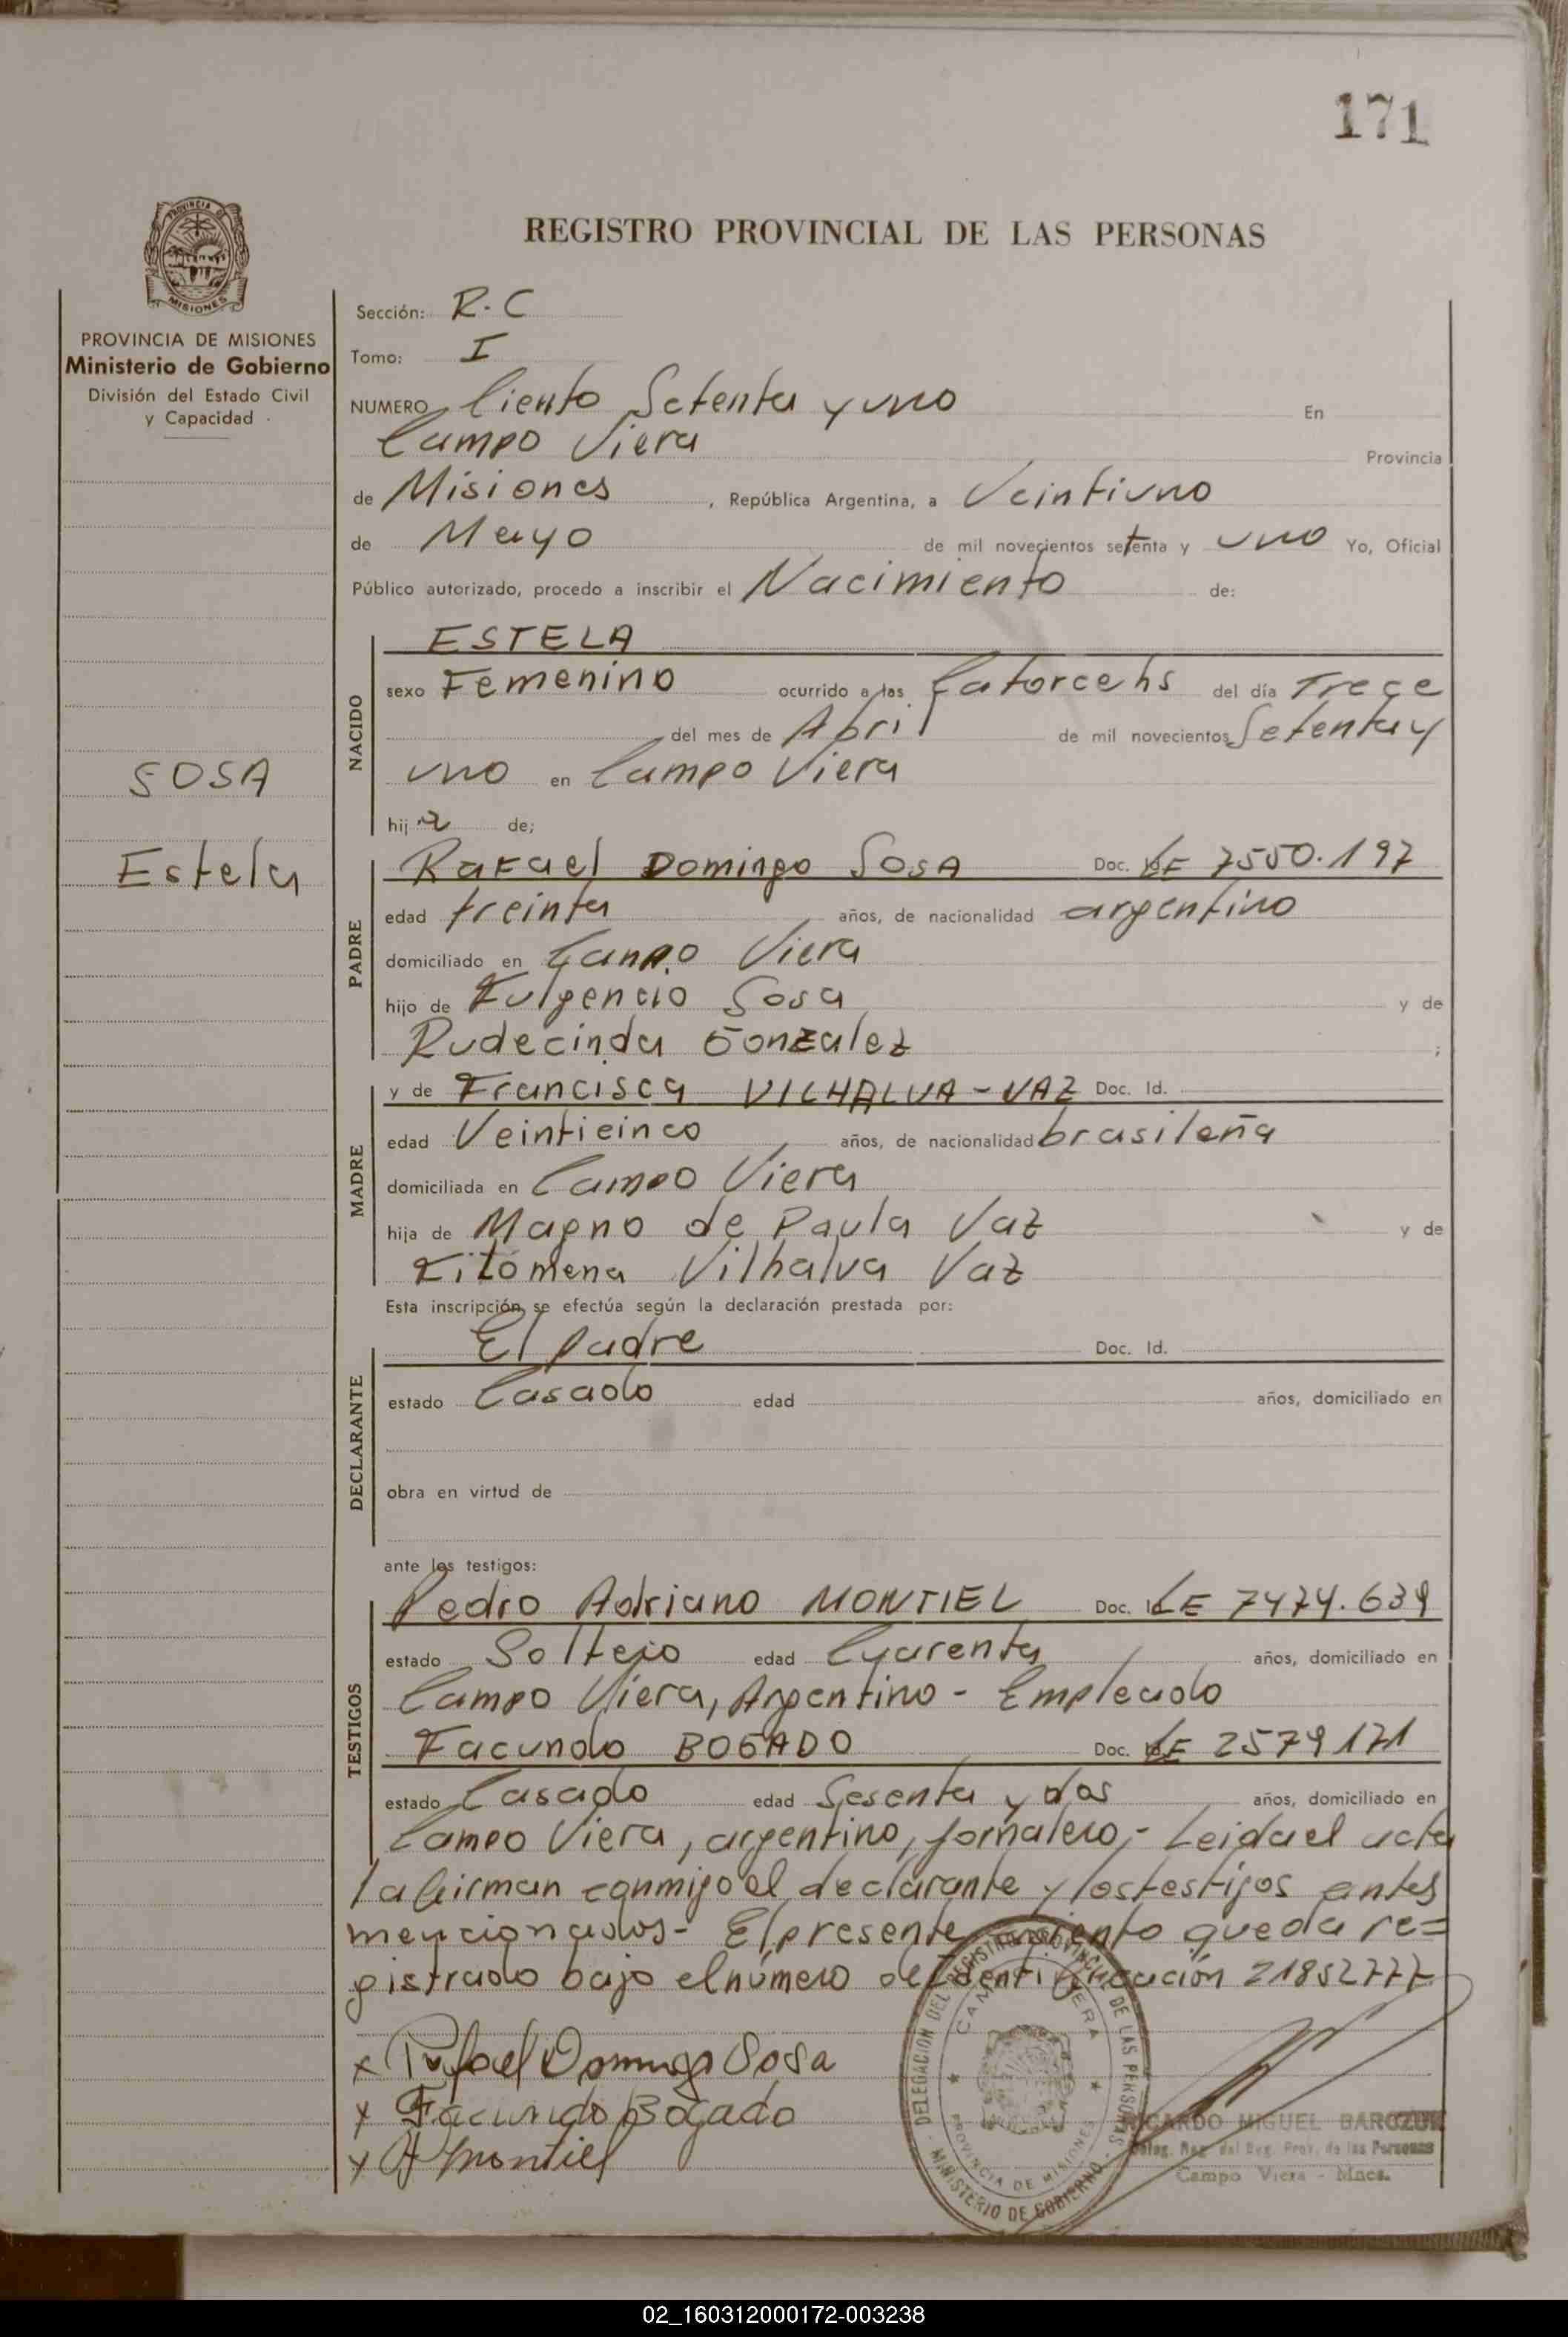 171
PROVINCIA DE
MISIONES
PROVINCIA DE MISIONES
Ministerio de Gobierno
División del Estado Civil
y Capacidad
SOSA
Estela
REGISTRO PROVINCIAL DE LAS PERSONAS
Sección: R.C
Tomo: I
NUMERO Ciento Setenta y uno En
Campo Viera Provincia
de Misiones, República Argentina, a Veintiuno
de Mayo de mil novecientos setenta y uno Yo, Oficial
Público autorizado, procedo a inscribir el Nacimiento de:
NACIDO
ESTELA
sexo Femenino ocurrido a las Catorce hs del día Trece
del mes de Abril de mil novecientos Setenta y
uno en Campo Viera
hija de;
PADRE
Rafael Domingo SOSA Doc. LE 7550.197
edad treinta años, de nacionalidad argentino
domiciliado en Campo Viera
hijo de Fulgencio Sosa y de
Rudecinda Gonzalez ;
MADRE
y de Francisca VILHALVA-VAZ Doc. Id.
edad Veinticinco años, de nacionalidad brasileña
domiciliada en Campo Viera
hija de Magno de Paula Vaz y de
Filomena Vilhalva Vaz
Esta inscripción se efectúa según la declaración prestada por:
DECLARANTE
El padre Doc. Id.
estado Casado edad años, domiciliado en
obra en virtud de
ante los testigos:
TESTIGOS
Pedro Adriano MONTIEL Doc. LE 7474.639
estado Soltero edad Cuarenta años, domiciliado en
Campo Viera, Argentino - Empleado
Facundo BOGADO Doc. LE 2579171
estado Casado edad Sesenta y dos años, domiciliado en
Campo Viera, argentino, jornalero,- Leida el acta
la firman conmigo el declarante y los testigos antes
mencionados- El presente queda re=
gistrado bajo el número de Identificación 21852777
x Rafael Domingo Sosa
x Facundo Bogado
x A Montiel
DELEGACION DEL REGISTRO PROVINCIAL DE LAS PERSONAS
CAMPO VIERA
PROVINCIA DE MISIONES
MINISTERIO DE GOBIERNO
RICARDO MIGUEL
Deleg. Reg. del Reg. Prov. de las Personas
Campo Viera - Mnes.
02_160312000172-003238